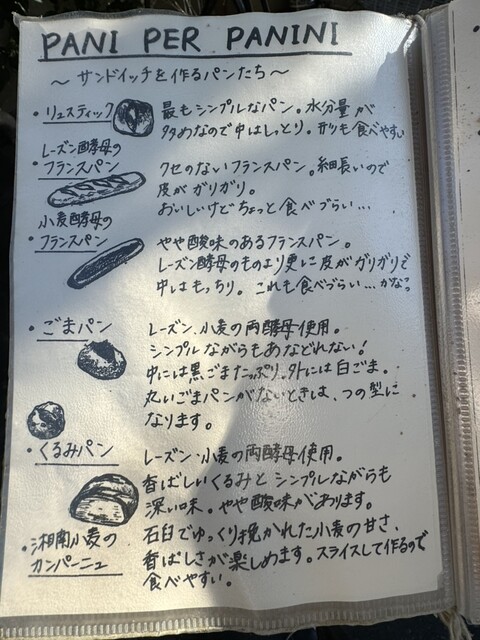 PANI PER PANINI
～サンドイッチを作るパンたち～
・リュスティック
最もシンプルなパン。水分量が
多めなので中はしっとり。形も食べやすい
レーズン酵母の
・フランスパン
クセのないフランスパン。細長いので
皮がガリガリ。
おいしいけどちょっと食べづらい…
小麦酵母の
・フランスパン
やや酸味のあるフランスパン。
レーズン酵母のものより更に皮がガリガリで
中はもっちり。これも食べづらい…かなっ
・ごまパン
レーズン、小麦の両酵母使用。
シンプルながらもあなどれない!
中には黒ごまたっぷり、外には白ごま。
丸いごまパンがないときは、つの型に
なります。
・くるみパン
レーズン、小麦の両酵母使用。
香ばしいくるみとシンプルながらも
深い味。やや酸味があります。
・湘南小麦の
カンパーニュ
石臼でゆっくり挽かれた小麦の甘さ、
香ばしさが楽しめます。スライスして作るので
食べやすい。